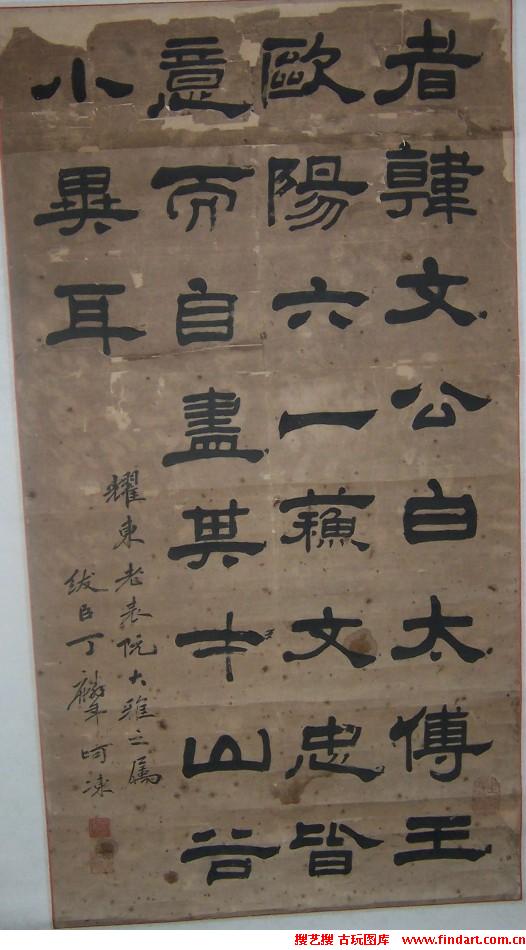 者韓文公白太傅王
歐陽六一蘇文忠皆
意而自盡其才山谷
小異耳
耀東老表阮大雅之属
紱臣丁麐年呵凍
搜艺搜 古玩图库 www.findart.com.cn